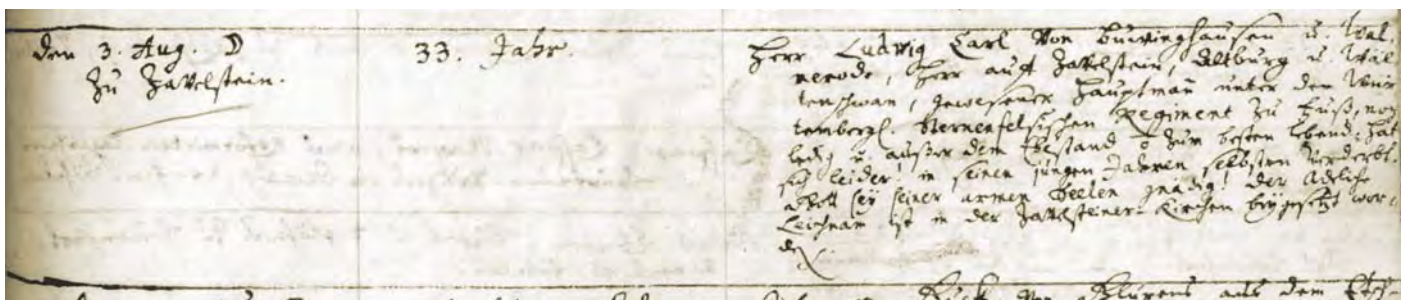 den 3. Aug. ☽
Zu Zavelstein.
33. Jahr.
Herr Ludwig Carl von Buwinghausen u. Wal,
merode, Herr auf Zavelstein, Altburg u. Wäl
tenschwan, gewesener Hauptman unter dem Würt
tembergl. Sternenfelsischen Regiment zu Fuß, noch
ledig u. außer dem Ehestand. Zum besten lebend. Hat
sich leider! in seinen jungen Jahren selbsten verderbt.
Gott sey seiner armen Seelen gnädig! der Adeliche
Leichnam ist in der Zavelsteiner Kirchen beygesetzt wor,
den.
von aus dem